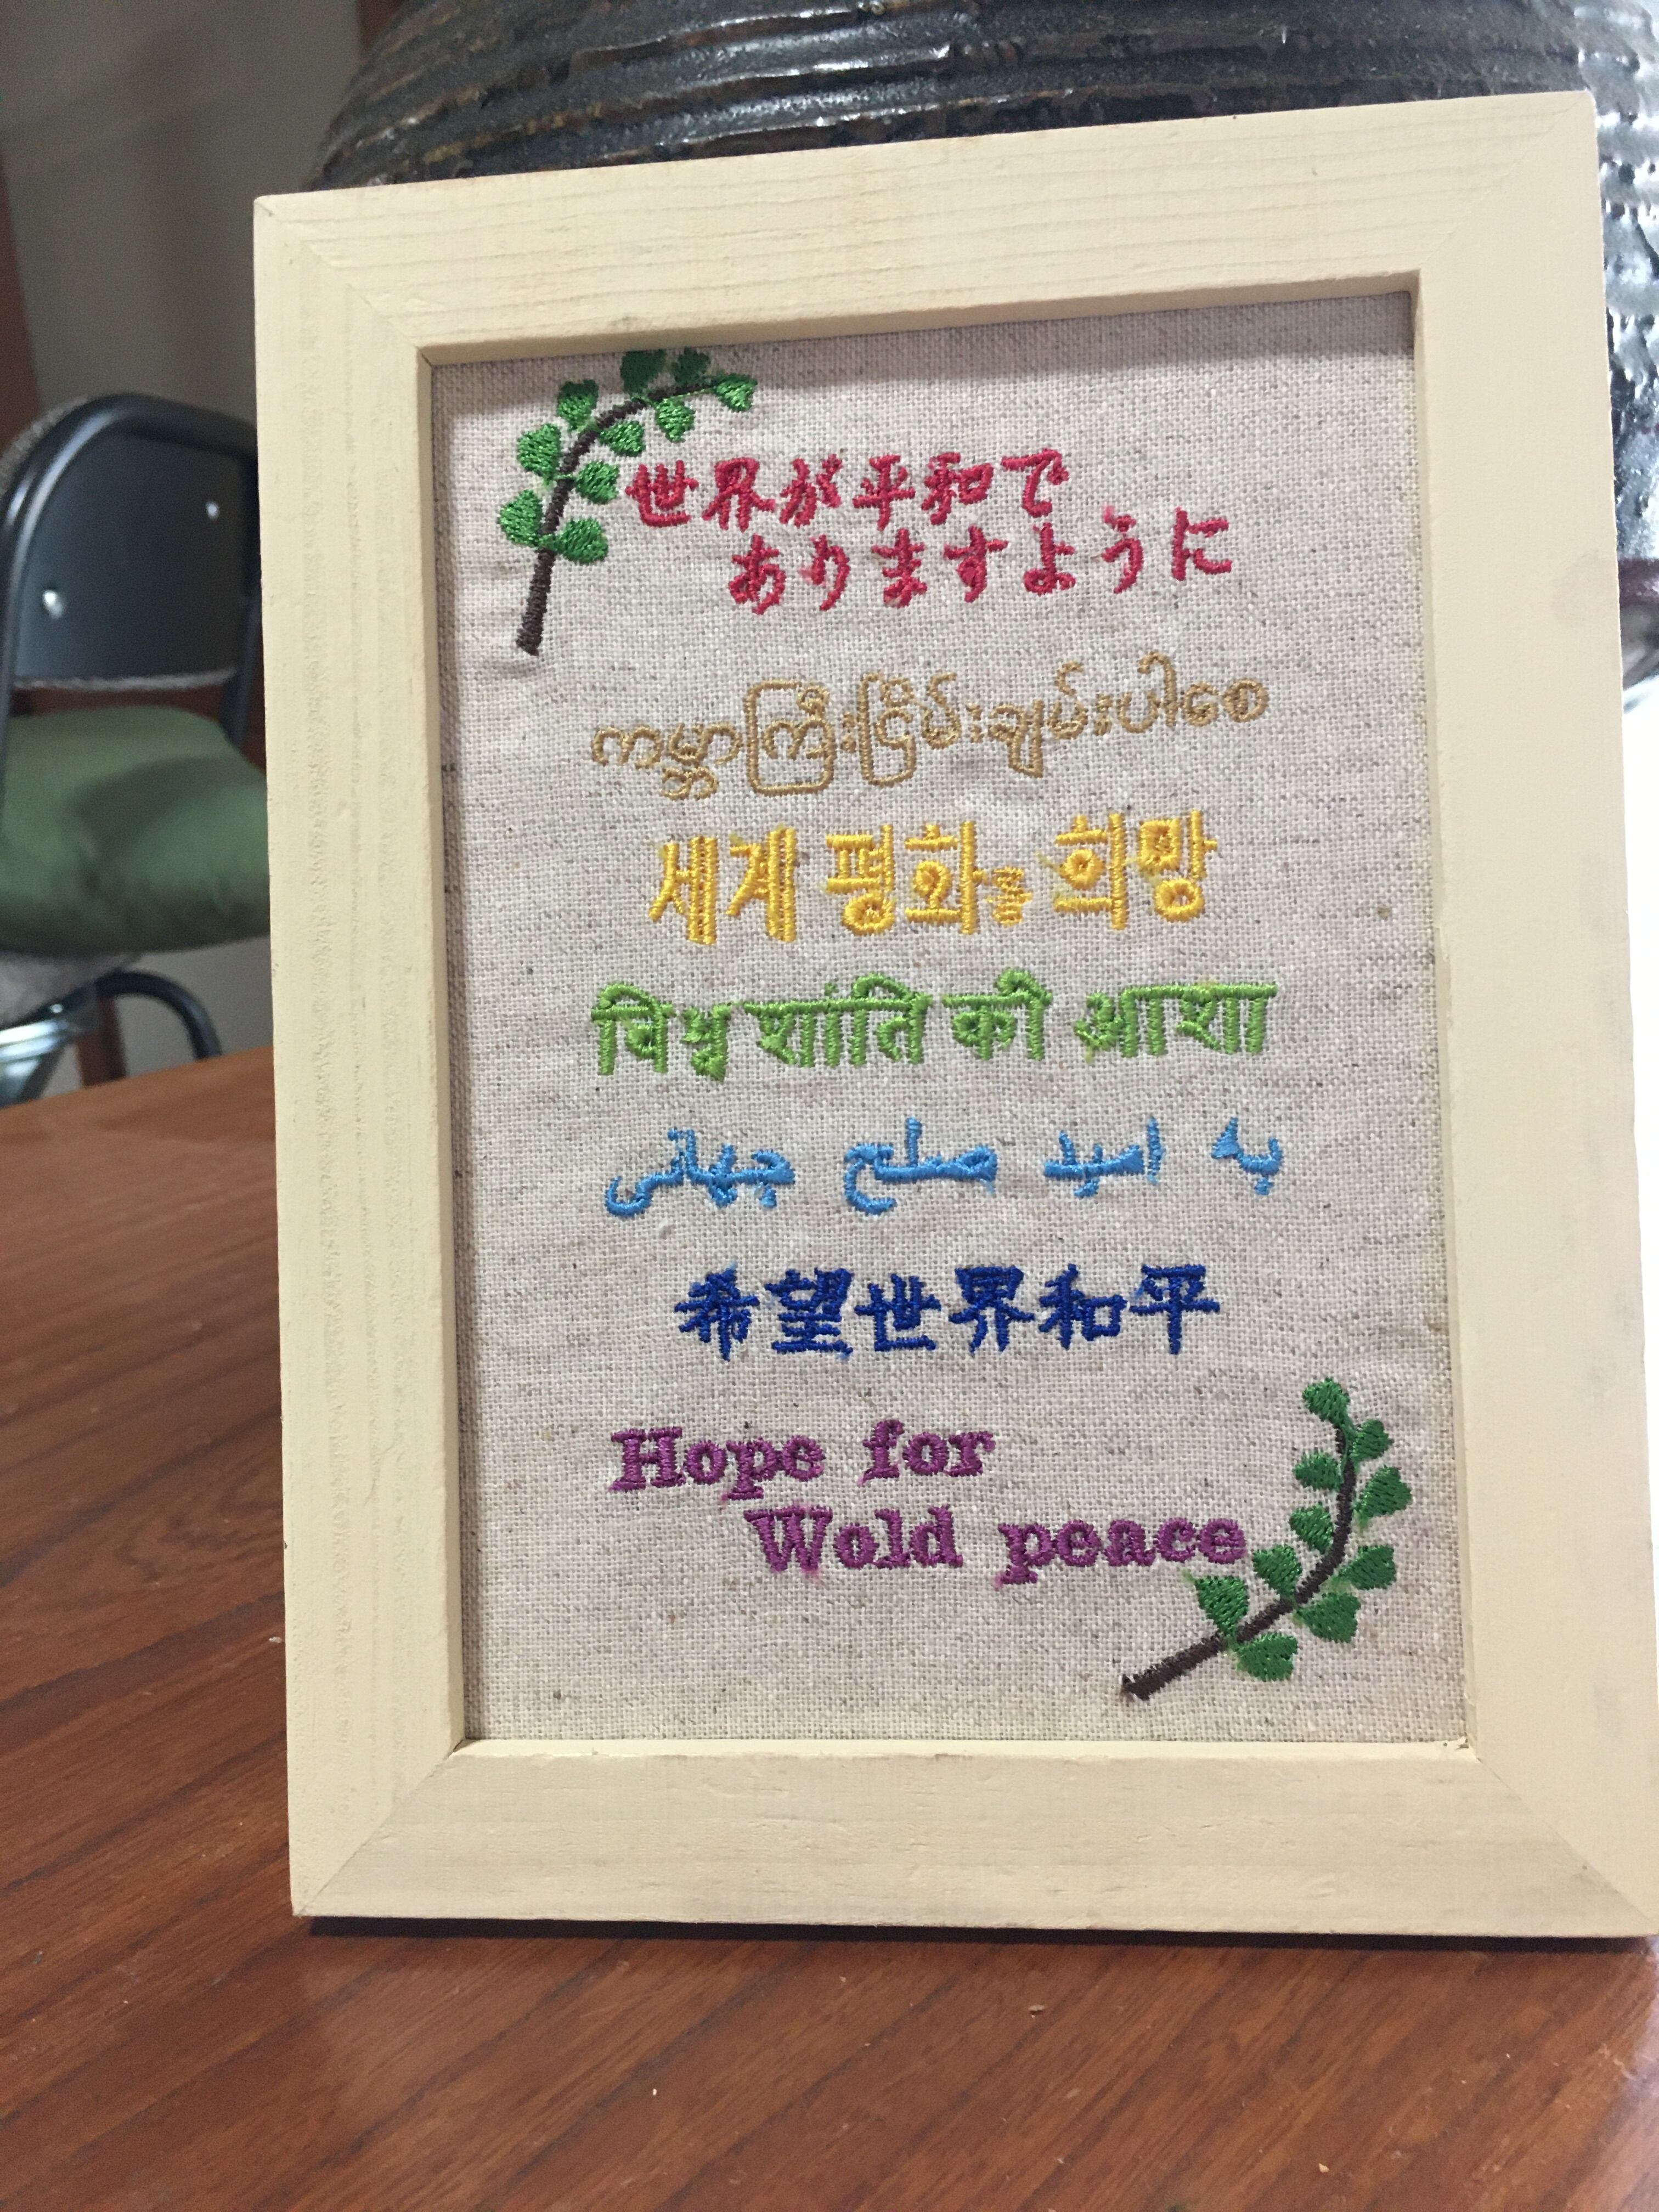 世界が平和で
ありますように
ကမ္ဘာကြီးငြိမ်းချမ်းပါစေ
세계 평화를 희망
विश्व शांति की आशा
به امید صلح جهانی
希望世界和平
Hope for
Wold peace